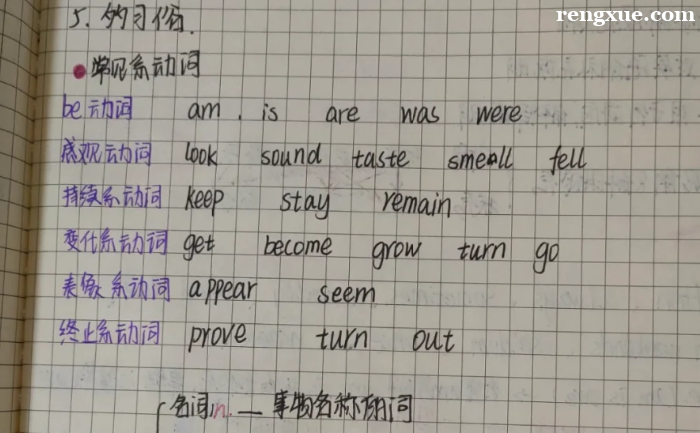 rengxue.com
5.的习俗.
常见系动词
be动词 am . is are was were
感观动词 look sound taste smeall fell
持续系动词 keep stay remain
变化系动词 get become grow turn go
表像系动词 appear seem
终止系动词 prove turn out
名词n. — 事物名称用词